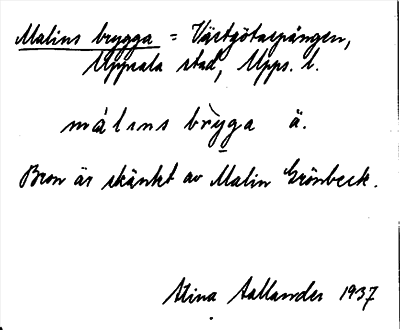 Malins brygga = Västgötaspången,
Uppsala stad, Upps. l.
málıns brỳga ä.
Bron är skänkt av Malin Grönbeck.
Stina Aallander 1937